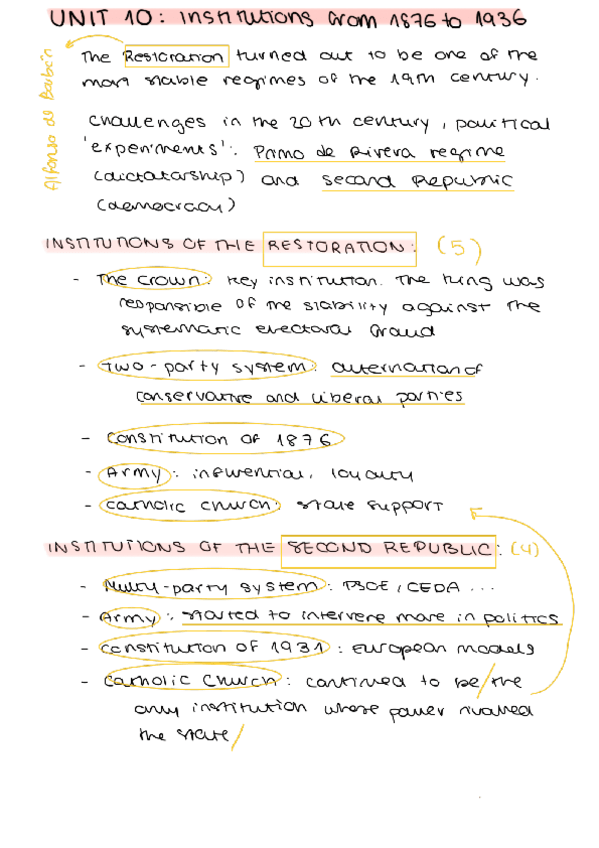 UNIT 10: Institutions from 1876 to 1936
Alfonso de Borbón
The Restoration turned out to be one of the
most stable regimes of the 19th century.
Challenges in the 20th century, political
'experiments': Primo de Rivera regime
(dictatorship) and second Republic
(democracy)
INSTITUTIONS OF THE RESTORATION: (5)
- The crown: key institution. The king was
responsible of the stability against the
systematic electoral fraud
- Two-party system: alternation of
conservative and liberal parties
- Constitution of 1876
- Army: influential, loyalty
- Catholic church: state support
INSTITUTIONS OF THE SECOND REPUBLIC: (4)
- Multy-party system: PSOE, CEDA ...
- Army: started to intervene more in politics
- constitution of 1931: European models
- Catholic Church: continued to be/the
only institution whose power rivaled
the state/